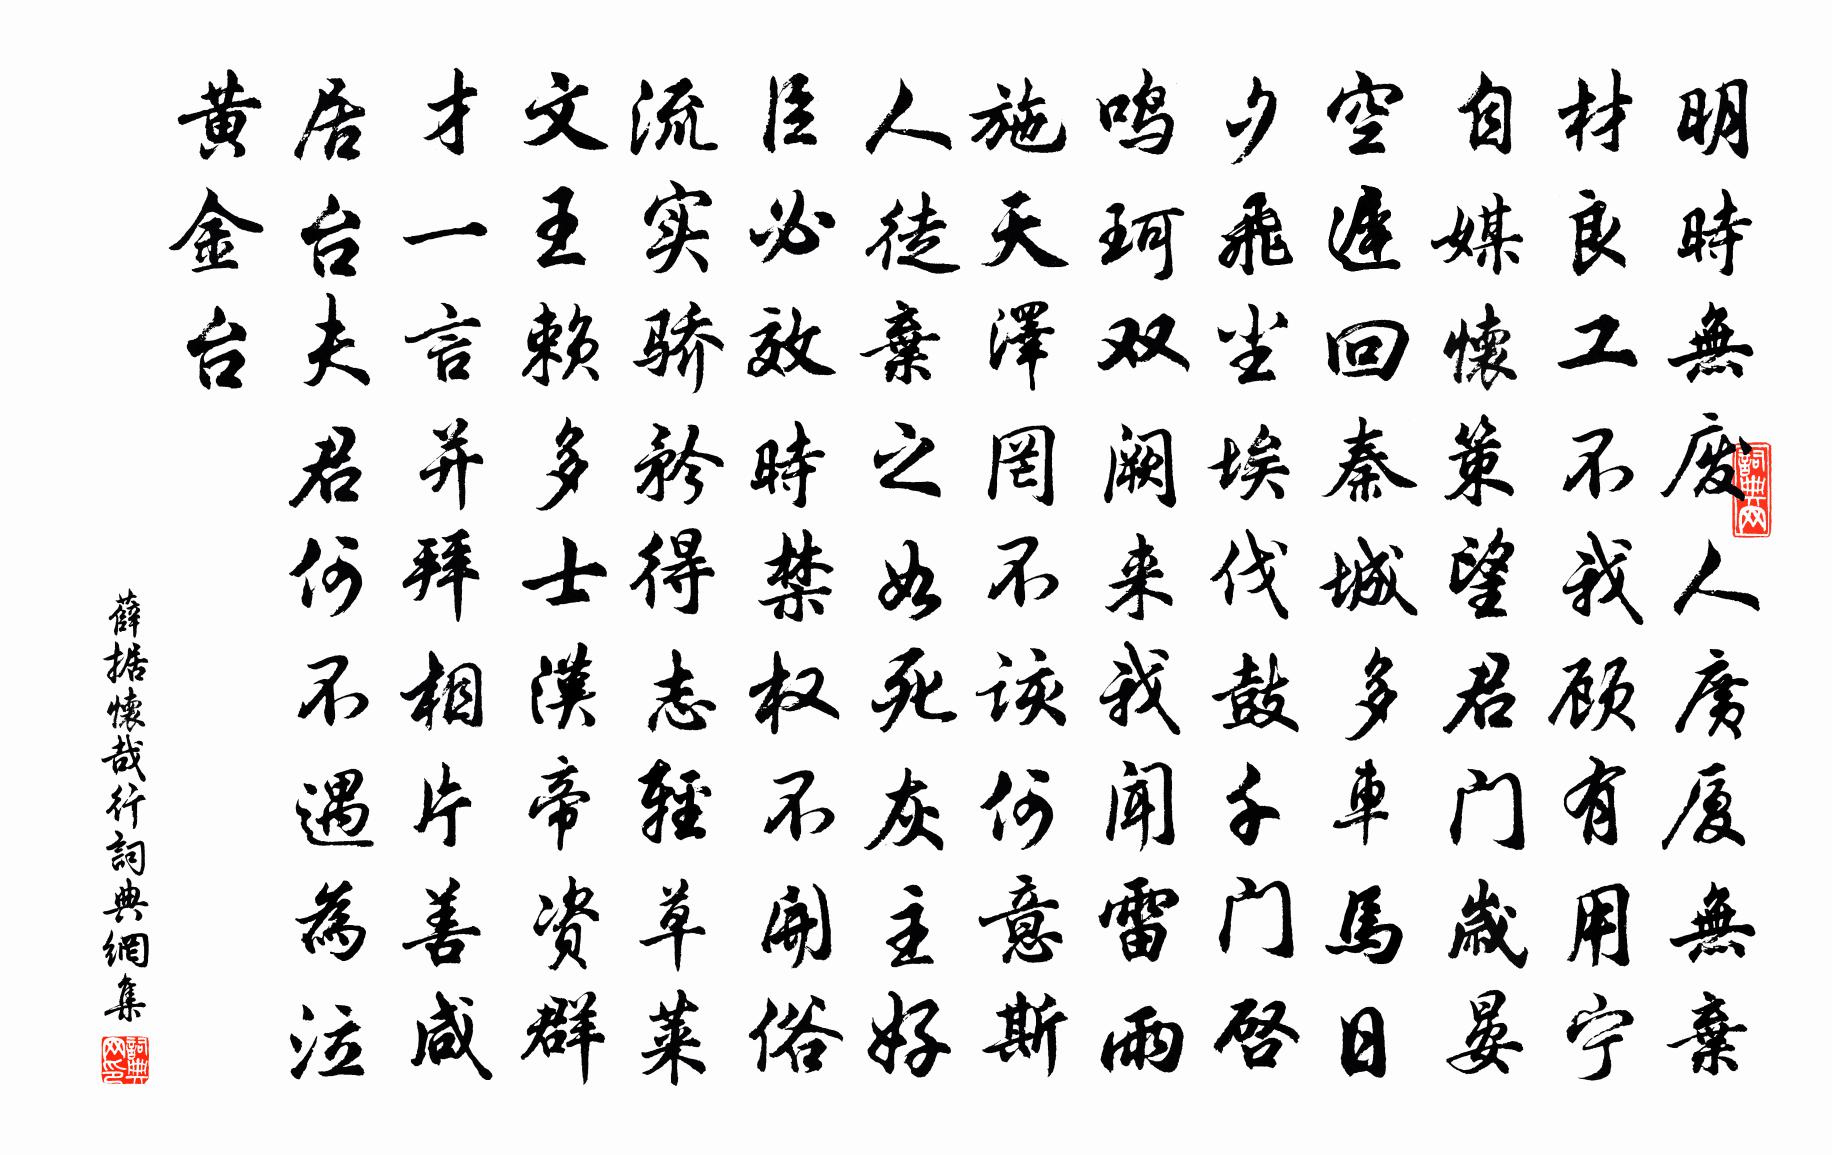 明時無废人广厦無棄
材良工不我顾有用宁
自媒懷策望君门歲晏
空遲回秦城多車馬日
夕飛尘埃伐鼓千门启
鸣珂双阙来我闻雷雨
施天澤罔不该何意斯
人徒棄之如死灰主好
臣必效時禁权不開俗
流实骄矜得志輕草莱
文王赖多士漢帝资群
才一言并拜相片善咸
居台夫君何不遇為泣
黄金台
薛据懷哉行詞典網集
詞典网
詞典网印